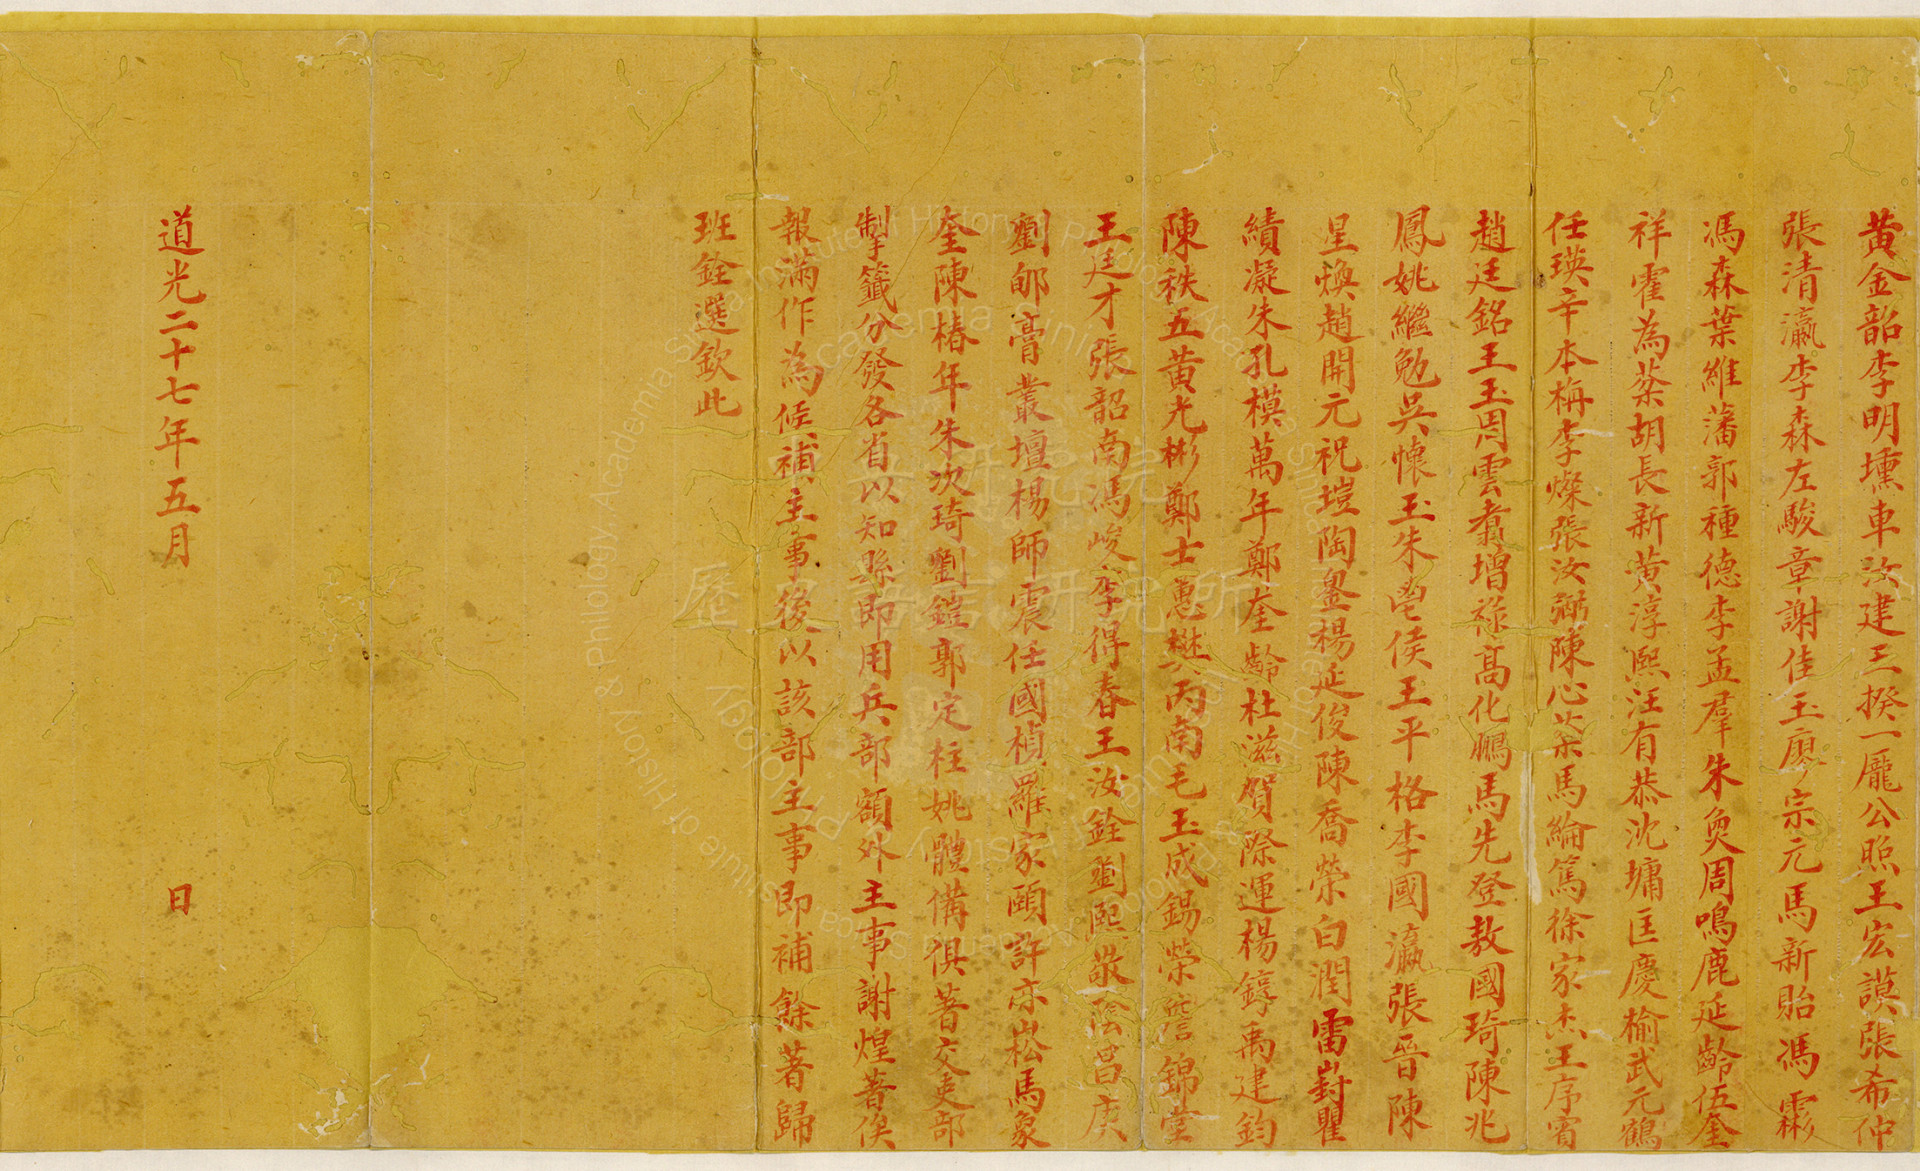 黄金韶李明壎車汝建王揆一龐公照王宏謨張希仲
張清瀛李森左駿章謝佳玉廖宗元馬新貽馮霖
馮森葉維藩郭種德李孟羣朱奐周鳴鹿延齡伍奎
祥霍為棻胡長新黄淳熙汪有恭沈墉匡慶榆武元鶴
任瑛辛本梅李燦張汝弼陳心棻馬綸篤徐家杰王序賓
趙廷銘王玉周雲翥增祿高化鵬馬先登敖國琦陳兆
鳳姚繼勉吳懷玉朱鬯侯王平格李國瀛張晉陳
星煥趙開元祝塏陶鋆楊延俊陳喬榮白潤雷崶瞿
績凝朱孔模萬年鄭奎齡杜滋賀際運楊錞禹建鈞
陳秩五黄光彬鄭士蕙樊丙南毛玉成錫榮詹錦堂
王廷才張韶南馮峻李得春王汝銓劉熙敬陰昌庚
劉郇膏叢壇楊師震任國楨羅家頤許亦崧馬象
奎陳椿年朱次琦劉鎧郭定柱姚體備俱著交吏部
掣籤分發各省以知縣即用兵部額外主事謝煌著俟
報滿作為候補主事後以該部主事即補餘著歸
班銓選欽此
道光二十七年五月　日
歷史語言研究所
Institute of History & Philology, Academia Sinica